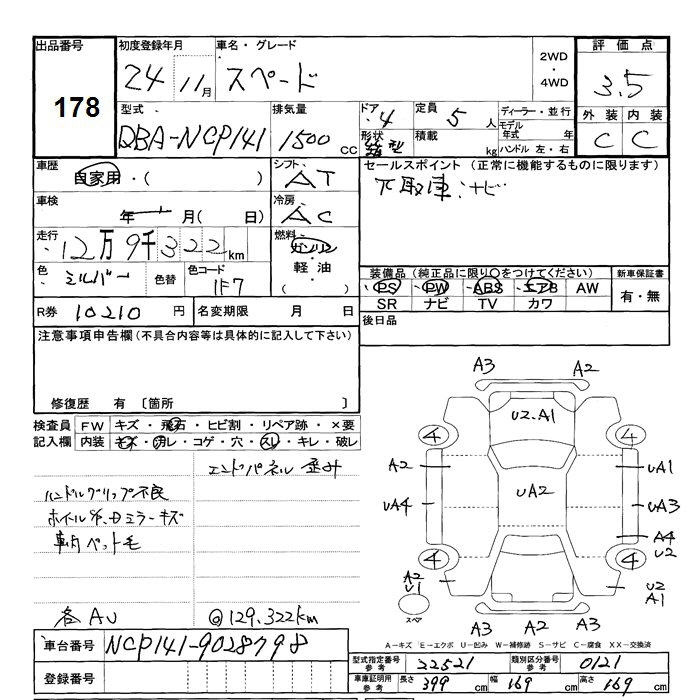 出品番号 初度登録年月 車名・グレード 2WD・4WD 評価点
178 24 11月 スペード 3.5
型式 排気量 ドア 定員 ディーラー・並行 外装 内装
DBA-NCP141 1500 CC 4 5人 モデル年式 年 C C
形状 箱型 積載 kg ハンドル 左・右
車歴 シフト セールスポイント (正常に機能するものに限ります)
自家用・( ) AT 下取車 ナビ
車検 年 月( 日) 冷房 AC
走行 12万9千322km 燃料 ガソリン
軽油
( )
色 シルバー 色替 色コード 1F7
装備品 (純正品に限り〇をつけてください) 新車保証書
PS PW ABS エアB AW 有・無
SR ナビ TV カワ
R券 10210 円 名変期限 月 日 後日品
注意事項申告欄 (不具合内容等は具体的に記入して下さい)
修復歴 有 〔箇所 〕
検査員 FW キズ・飛石・ヒビ割・リペア跡・×要
記入欄 内装 キズ・汚レ・コゲ・穴・スレ・キレ・破レ
エンドパネル 歪み
ハンドルグリップ不良
ミラーキズ
車内ペット毛
各AU @129,322km
A3 A2
U2.A1
4 4
A2 UA1
UA2
UA4 UA3
A4
U2
4 4
A2
U1
U2
A1
スペア
A3 A3 A2
A-キズ E-エクボ U-凹み W-補修跡 S-サビ C-腐食 XX-交換済
車台番号 NCP141-9028798
登録番号
型式指定番号 参考 22521 類別区分番号 参考 0121
車庫証明用 参考 長さ 399 cm 幅 169 cm 高さ 169 cm